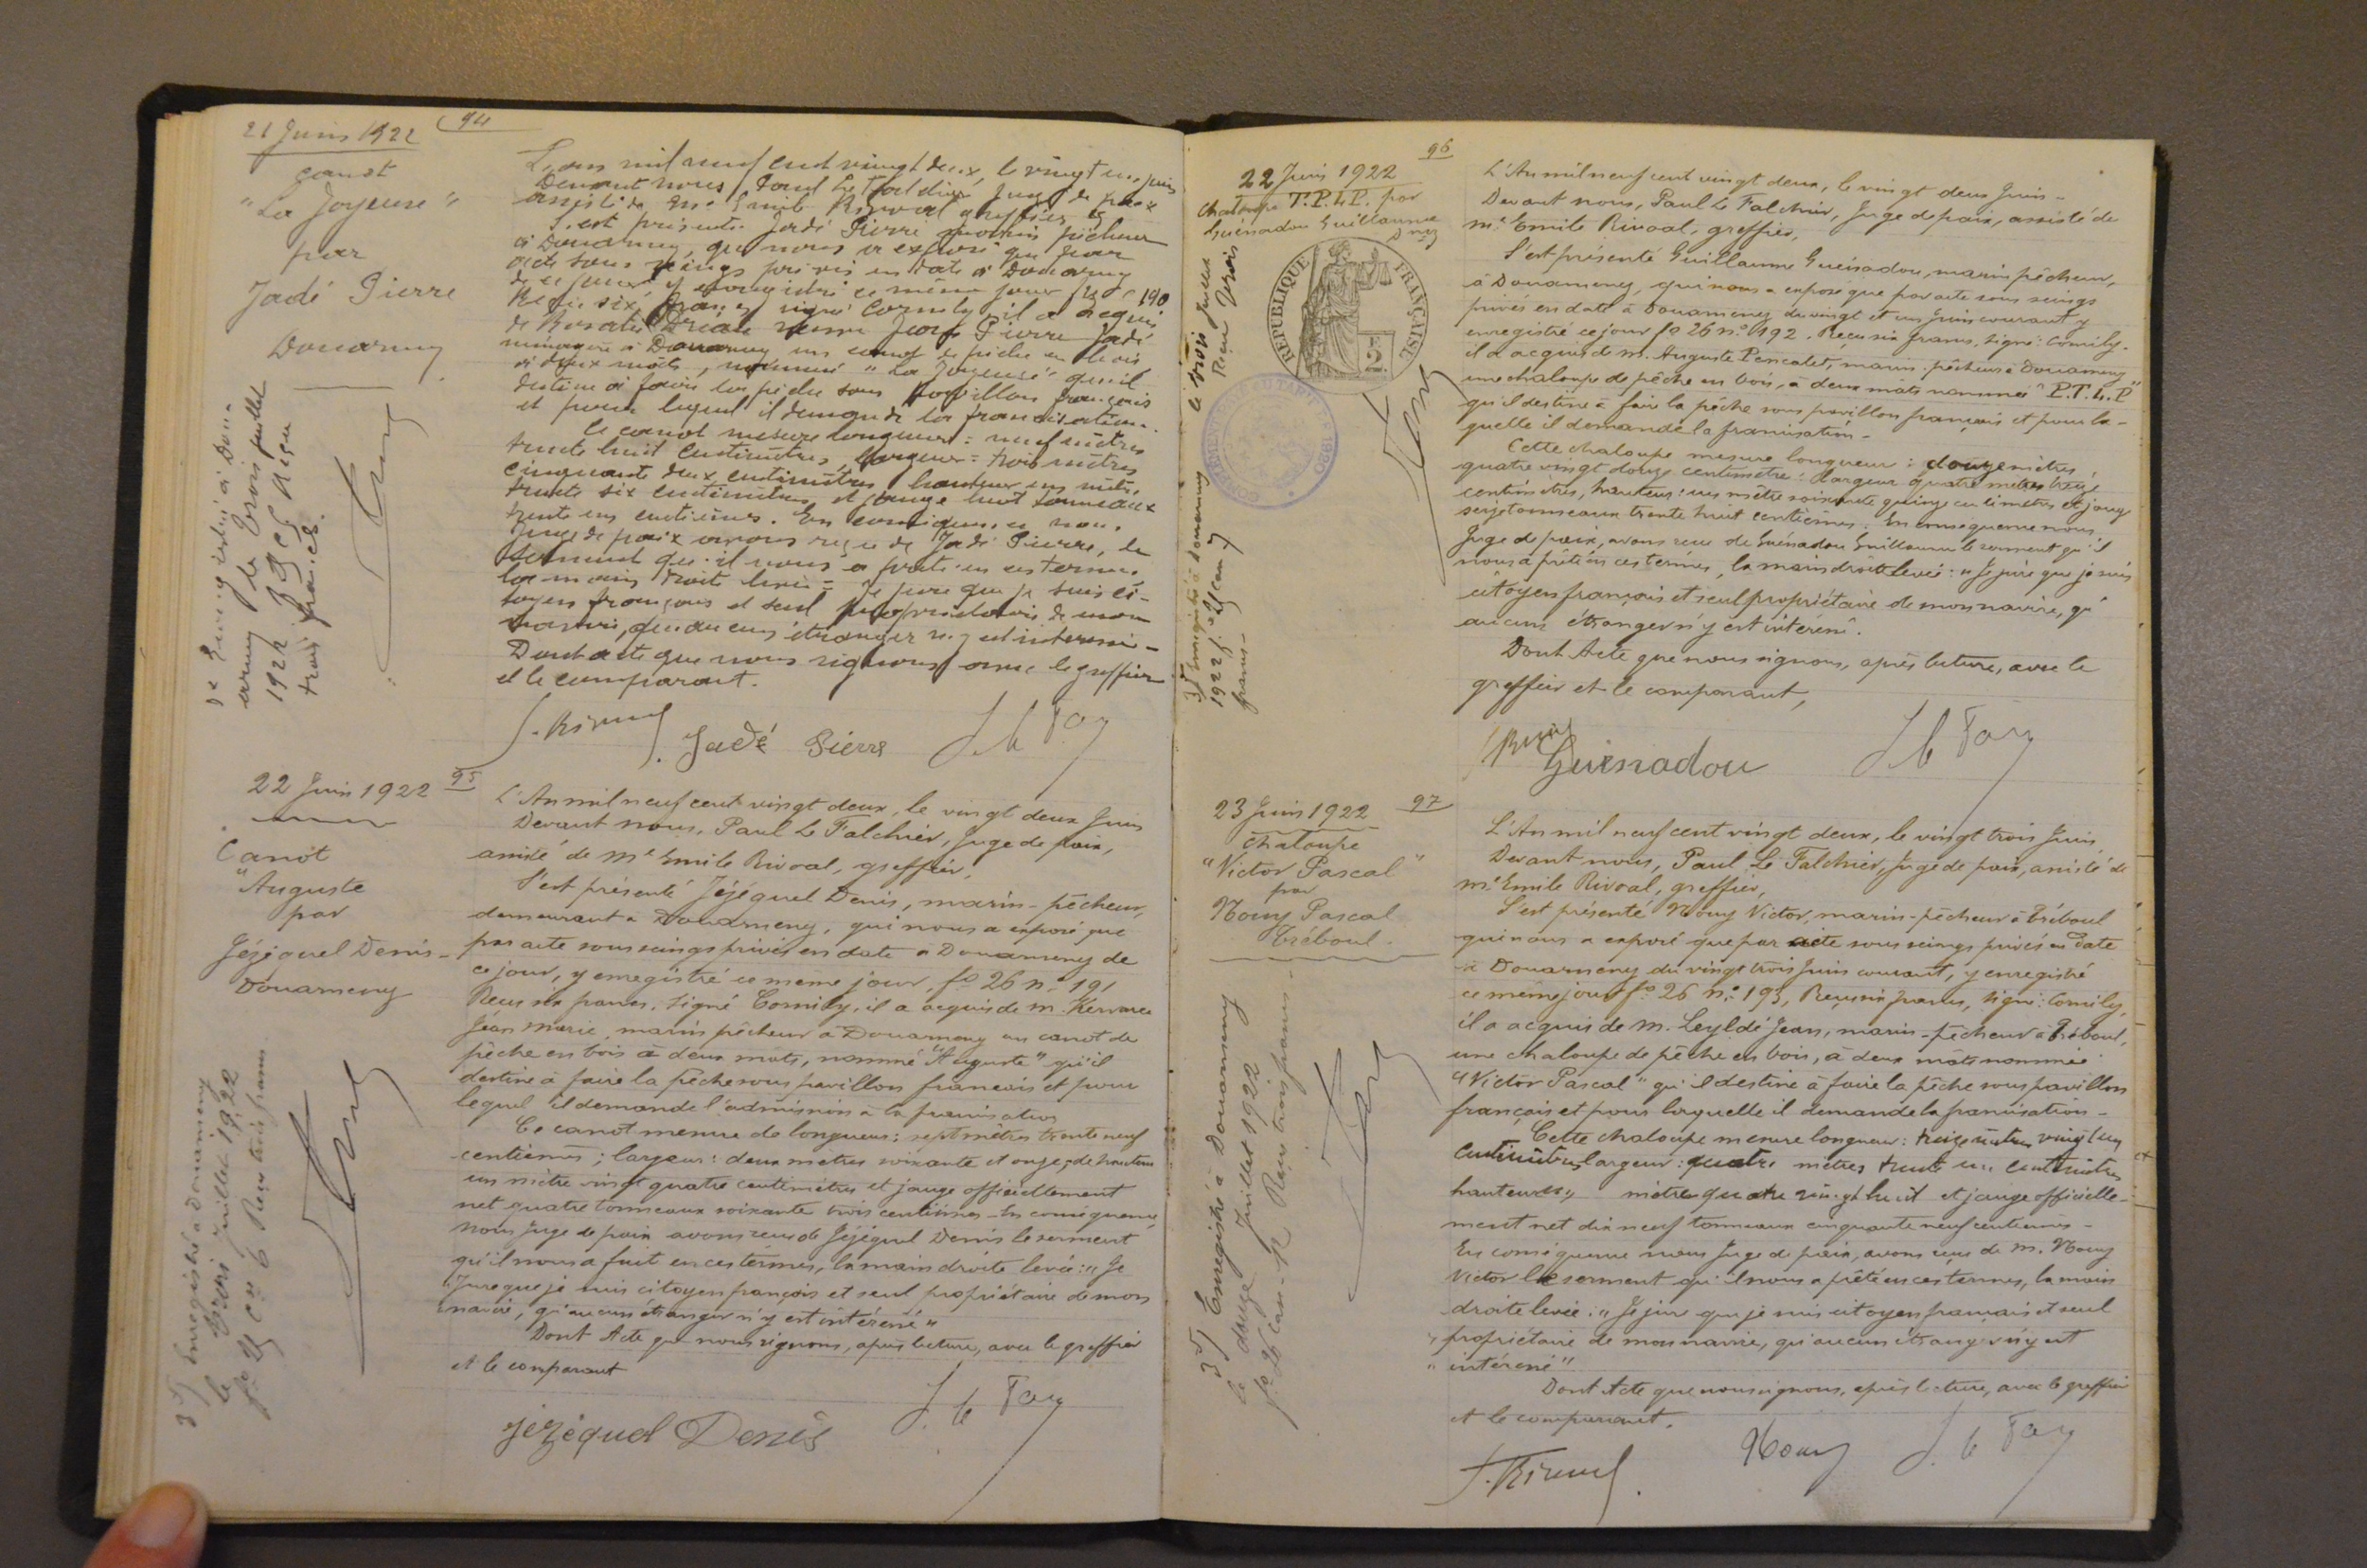 21 Juin 1922
94
canot
"La Joyeuse"
par
Jadé Pierre
Douarnenez
L'an mil neuf cent vingt deux, le vingt un juin
Devant nous Paul Le Falchier Juge de paix
assisté de Me Emile Rivoal greffier
S'est présenté Jadé Pierre marin pêcheur
à Douarnenez, qui nous a exposé que par
acte sous seings privés en date à Douarnenez
de ce jour, y enregistré ce même jour fo 26 no 190
Reçu six francs, signé Cornily, il a acquis
de Rosalie veuve Jean Pierre Jadé
ménagère à Douarnenez un canot de pêche en bois
à deux mâts, nommé "La Joyeuse" qu'il
destine à faire la pêche sous pavillon français
et pour lequel il demande la francisation.
Ce canot mesure longueur = neuf mètres
trente huit centimètres, largeur = trois mètres
cinquante deux centimètres, hauteur un mètre
trente six centimètres et jauge huit tonneaux
trente un centièmes. En conséquence nous
Juge de paix avons reçu de Jadé Pierre, le
serment qu'il nous a prêté en ces termes
la main droite levée = Je jure que je suis ci-
toyen français et seul propriétaire de mon
navire, qu'aucun étranger n'y est intéressé -
Dont acte que nous signons avec le greffier
et le comparant.
Enregistré à Dou-
arnenez le trois juillet
1922 Reçu
trois francs.
E. Rivoal Jadé Pierre
22 Juin 1922
95
Canot
"Auguste
par
Jézéquel Denis -
Douarnenez
L'An mil neuf cent vingt deux, le vingt deux Juin
Devant nous, Paul Le Falchier, Juge de paix,
assisté de Me Emile Rivoal, greffier,
S'est présenté Jézéquel Denis, marin-pêcheur,
demeurant à Douarnenez, qui nous a exposé que
par acte sous seings privés en date à Douarnenez de
ce jour, y enregistré ce même jour, fo 26 no 191
Reçu six francs, signé Cornily, il a acquis de M. Kervarec
Jean Marie, marin pêcheur à Douarnenez un canot de
pêche en bois à deux mâts, nommé "Auguste" qu'il
destine à faire la pêche sous pavillon français et pour
lequel il demande l'admission à la francisation
Ce canot mesure de longueur : sept mètres trente neuf
centièmes ; largeur : deux mètres soixante et onze ; de hauteur
un mètre vingt quatre centimètres et jauge officiellement
net quatre tonneaux soixante trois centièmes - En conséquence,
nous Juge de paix avons reçu de Jézéquel Denis le serment
qu'il nous a fait en ces termes, la main droite levée : "Je
"Jure que je suis citoyen français et seul propriétaire de mon
navire, qu'aucun étranger n'y est intéressé"
Dont Acte que nous signons, après lecture, avec le greffier
et le comparant
Enregistré à Douarnenez
le trois Juillet 1922
Reçu trois francs
Jézéquel Denis
96
22 Juin 1922
chaloupe T.P.L.P. par
Guénadou Guillaume
Dnez
REPUBLIQUE FRANÇAISE
2
L'An mil neuf cent vingt deux, le vingt deux Juin -
Devant nous, Paul Le Falchier, Juge de paix, assisté de
Me Emile Rivoal, greffier,
S'est présenté Guillaume Guénadou, marin pêcheur,
à Douarnenez, qui nous a exposé que par acte sous seings
privés en date à Douarnenez du vingt et un Juin courant y
enregistré ce jour fo 26 no 192. Reçu six francs, signé : Cornily.
il a acquis de M. Auguste Pencalet, marin-pêcheur à Douarnenez
une chaloupe de pêche en bois, à deux mâts nommée "P.T.L.P"
qu'il destine à faire la pêche sous pavillon français et pour la-
quelle il demande la francisation -
Cette chaloupe mesure longueur : douze mètres
quatre vingt douze centimètres ; largeur quatre mètres treize
centimètres, hauteur : un mètre soixante quinze centimètres et jauge
seize tonneaux trente huit centièmes. En conséquence nous,
Juge de paix, avons reçu de Guénadou Guillaume le serment qu'il
nous a prêté en ces termes, la main droite levée : "Je jure que je suis
citoyen français et seul propriétaire de mon navire, qu'
aucun étranger n'y est intéressé.
Dont Acte que nous signons, après lecture, avec le
greffier et le comparant,
Enregistré à Douarnenez le trois Juillet
1922 Reçu trois
francs -
Guénadou
23 Juin 1922
97
chaloupe
"Victor Pascal"
par
Nouy Pascal
Tréboul -
L'An mil neuf cent vingt deux, le vingt trois Juin
Devant nous, Paul Le Falchier, Juge de paix, assisté de
Me Emile Rivoal, greffier,
S'est présenté Nouy Victor, marin-pêcheur à Tréboul
qui nous a exposé que par acte sous seings privés en date
à Douarnenez du vingt trois Juin courant, y enregistré
ce même jour fo 26 no 193, Reçu six francs, signé : Cornily,
il a acquis de M. Leyldé Jean, marin-pêcheur à Tréboul,
une chaloupe de pêche en bois, à deux mâts nommée
"Victor Pascal" qu'il destine à faire la pêche sous pavillon
français et pour laquelle il demande la francisation -
Cette chaloupe mesure longueur : treize mètres vingt un
centimètres, largeur : quatre mètres trente un centimètres
hauteur un mètre quatre vingt huit et jauge officielle-
ment net dix neuf tonneaux cinquante neuf centièmes -
En conséquence nous Juge de paix, avons reçu de M. Nouy
Victor le serment qu'il nous a prêté en ces termes, la main
droite levée : "Je jure que je suis citoyen français et seul
"propriétaire de mon navire, qu'aucun étranger n'y est
"intéressé"
Dont Acte que nous signons, après lecture, avec le greffier
et le comparant.
Enregistré à Douarnenez
le douze Juillet 1922
Reçu trois francs -
E. Rivoal Nouy